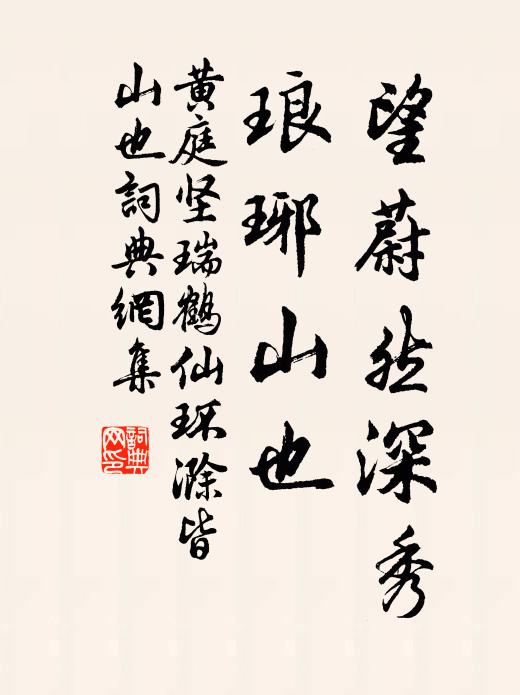 望蔚然深秀
琅琊山也
黄庭坚瑞鹤仙环滁皆
山也詞典網集
詞典
网印